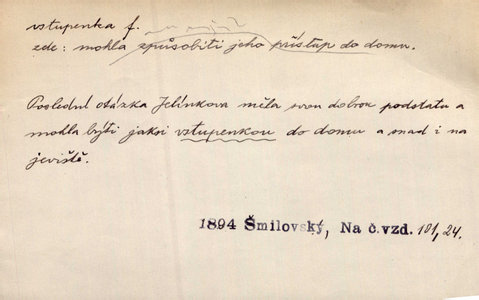 vstupenka f.
zde: mohla způsobiti jeho přístup do domu.
Poslední otázka Jelínkova měla svou dobrou podstatu a
mohla býti jaksi vstupenkou do domu a snad i na
jeviště.
1894 Šmilovský, Na č.vzd. 101, 24.